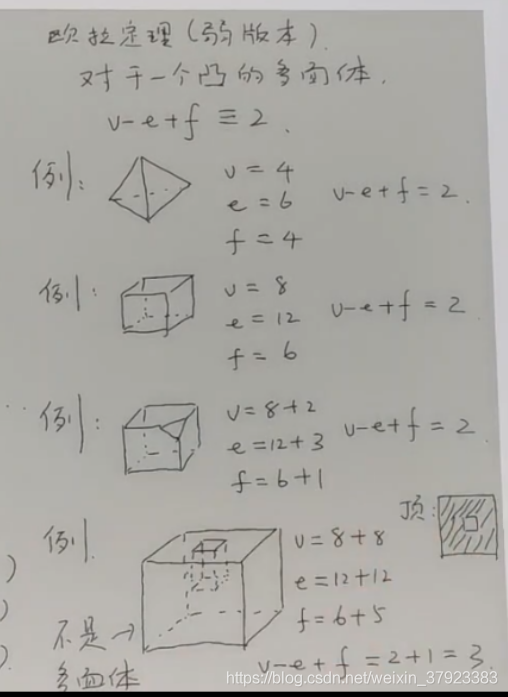 欧拉定理(弱版本).
对于一个凸的多面体.
v-e+f≡2.
例: v=4
e=6 v-e+f=2.
f=4
例: v=8
e=12 v-e+f=2
f=6
例: v=8+2
e=12+3 v-e+f=2
f=6+1
顶:
例. v=8+8
e=12+12
f=6+5
不是→
多面体
v-e+f=2+1=3.
https://blog.csdn.net/weixin_37923383